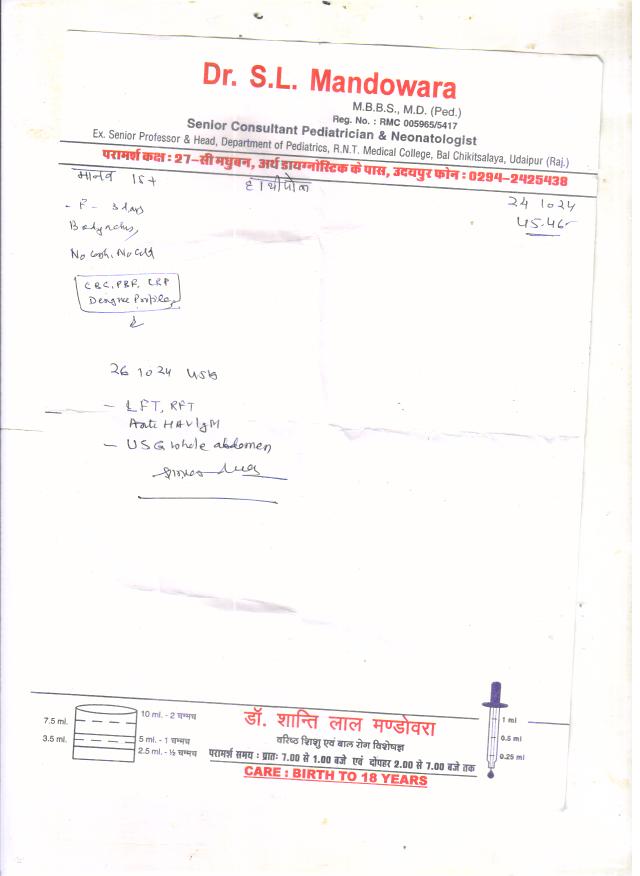 Dr. S.L. Mandowara
M.B.B.S., M.D. (Ped.)
Reg. No. : RMC 005965/5417
Senior Consultant Pediatrician & Neonatologist
Ex. Senior Professor & Head, Department of Pediatrics, R.N.T. Medical College, Bal Chikitsalaya, Udaipur (Raj.)
परामर्श कक्ष : 27-सी मधुबन, अर्थ डायग्नोस्टिक के पास, उदयपुर फोन : 0294-2425438
मानव 15+ हाथीपोल
24 10 24
- F - 3 days
No Cough, No Cold
CBC, PBF, CRP
Dengue Profile
26 10 24
- LFT, RFT
Anti HAV IgM
- USG whole abdomen
10 ml. - 2 चम्मच
7.5 ml.
3.5 ml.
5 ml. - 1 चम्मच
2.5 ml. - ½ चम्मच
डॉ. शान्ति लाल मण्डोवरा
वरिष्ठ शिशु एवं बाल रोग विशेषज्ञ
परामर्श समय : प्रातः 7.00 से 1.00 बजे एवं दोपहर 2.00 से 7.00 बजे तक
CARE : BIRTH TO 18 YEARS
1 ml
0.5 ml
0.25 ml